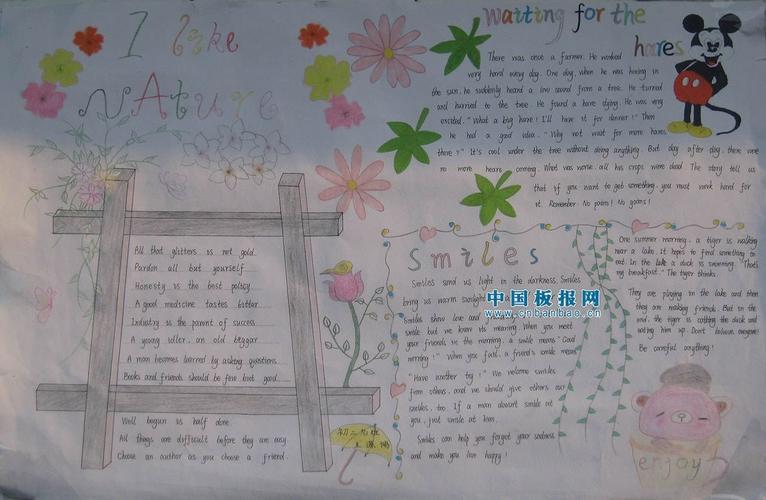 I like
NAture
All that glitters is not gold.
Pardon all but yourself.
Honesty is the best policy
A good medicine tastes bitter.
Industry is the parent of success
A young idler, an old beggar
A man becomes learned by asking questions.
Books and friends should be few but good
Well begun is half done.
All things are difficult before they are easy.
Choose an author as you choose a friend.
waiting for the
hares
There was once a farmer. He worked
very hard every day. One day, when he was hoeing in
the sun, he suddenly heard a low sound from a tree. He turned
and hurried to the tree. He found a hare dying. He was very
excited. "What a big hare! I'll have it for dinner!" Then
he had a good idea. "Why not wait for more hares
there?" It's cool under the tree without doing anything. But day after day, there were
no more hears coming. What was worse, all his crops were dead. The story tell us
that if you want to get something, you must work hard for
it. Remember: No pains! No gains!
Smiles
Smiles send us light in the darkness. Smiles
bring us warm sunlight
Smiles show love and
smile but we know its meaning. When you meet
your friends in the morning, a smile means "Good
morning!" When you fail, a friend's smile means
"Have another try!" We welcome smiles
from others, and we should give others our
smiles, too. If a man doesn't smile at
you, just smile at him.
Smiles can help you forget your sadness
and make you live happy!
One summer morning, a tiger is walking
near a lake. It hopes to find something to
eat. In the lake a duck is swimming. "That's
my breakfast." The tiger thinks.
They are playing in the lake and then
they are making friends. But in the
end, the tiger is catching the duck and
eating him up. Don't believe everyone!
Be careful anything!
中国板报网
www.cnbanbao.cn
初二
enjoy